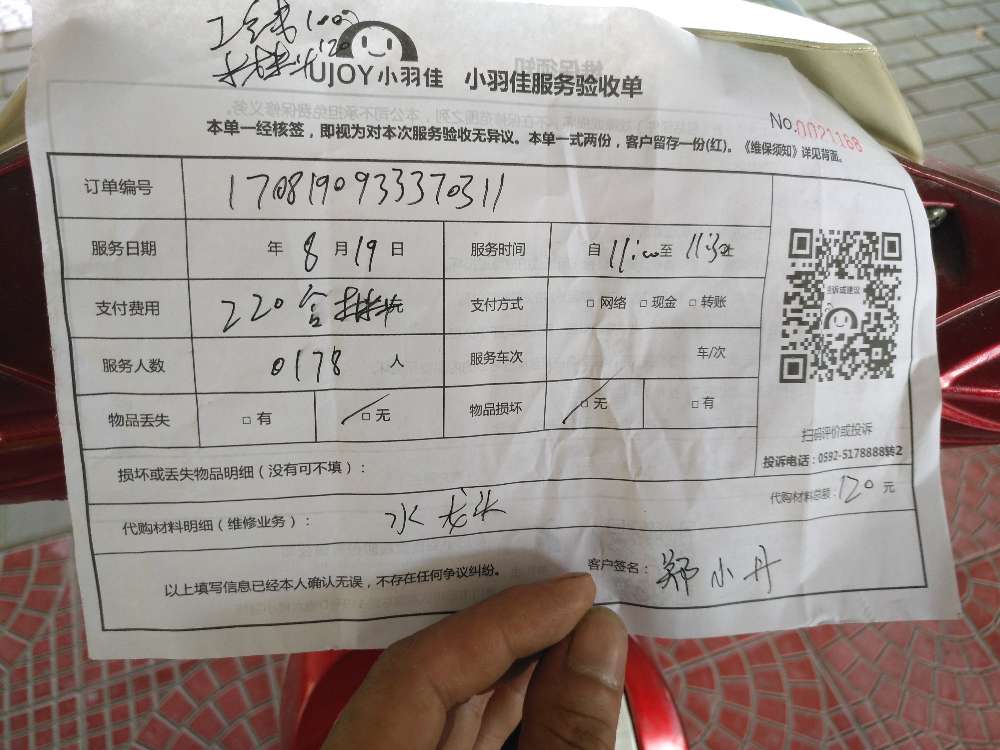 工钱100
UJOY小羽佳 小羽佳服务验收单
No.0021168
本单一经核签，即视为对本次服务验收无异议。本单一式两份，客户留存一份(红)。《维保须知》详见背面。
订单编号 1708190933370311
服务日期 年 8 月 19 日 服务时间 自 11:00 至 11:30 止
支付费用 220含 元 支付方式 □ 网络 □ 现金 □ 转账
服务人数 0178 人 服务车次 车/次
物品丢失 □ 有 □ 无 物品损坏 □ 无 □ 有
扫码评价或投诉
投诉电话：0592-5178888转2
损坏或丢失物品明细（没有可不填）：
代购材料明细（维修业务）： 水龙头 代购材料总额：120 元
以上填写信息已经本人确认无误，不存在任何争议纠纷。 客户签名：郑小丹